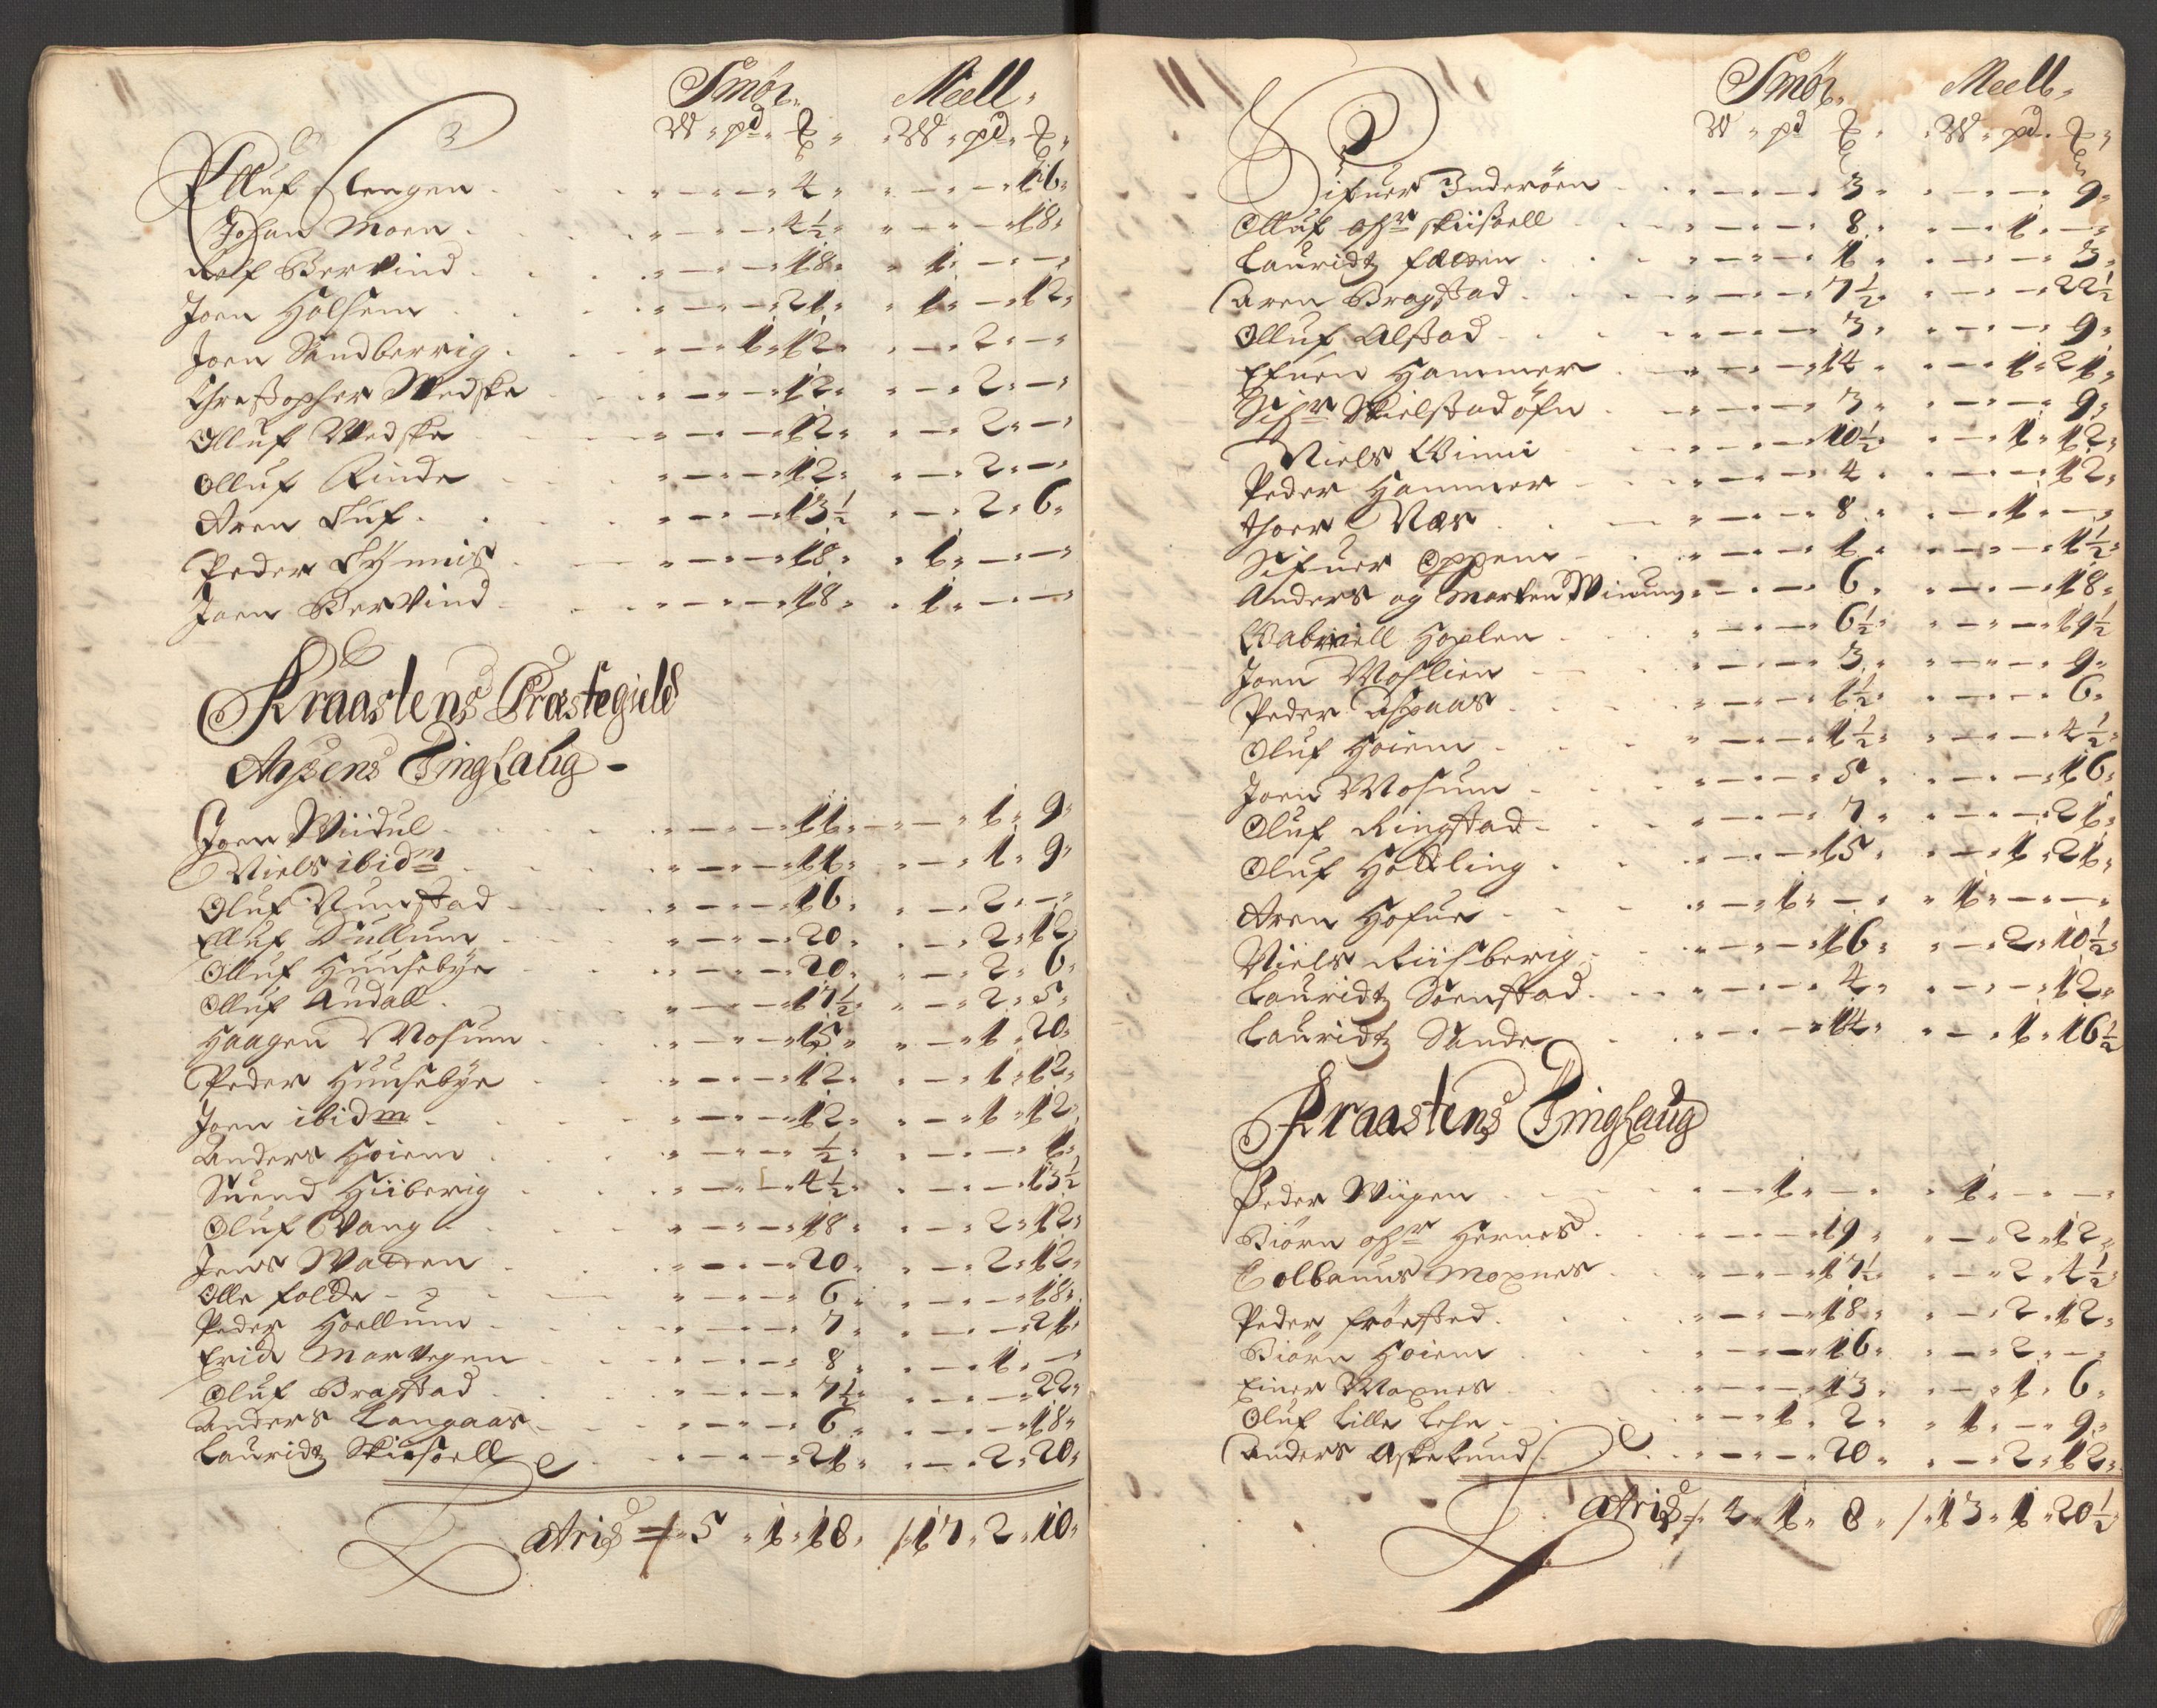 Smör, Meell,
W " pd " ℔ " " W " pd " ℔ "
Olluf Slengen " — " — " 4 " " — " — 16 "
Johan Moen " — " — " 4½ " " — " — 18 "
Rolf Bervind " — " — 18 " " 1 " — " —
Joen Holsem " — " — 21 " " 1 " — 12 "
Joen Sandberrig " — 1 " 12 " " — 2 " — "
Christopher Wedske " — " — 12 " " — 2 " — "
Olluf Wedske " — " — 12 " " — 2 " — "
Olluf Rinde " — " — 12 " " — 2 " — "
Aren Tuf " — " — 13½ " — 2 " 6 "
Peder Tÿmis " — " — 18 " " 1 " — " —
Joen Bervind " — " — 18 " " 1 " — " —
Kraastens Præstegield
Aasens Tinglaug —
Joen Wiidul " — " — 11 " — " — 1 " 9 "
Niels ibidm " — " — 11 " " — 1 " 9 "
Oluf Numstad " — " — 16 " " — 2 " — "
Elluf Dullum " — " — 20 " " — 2 " 12 "
Olluf Huusebÿe " — " — 20 " " — 2 " 6 "
Olluf Audall " — " — 17½ " " — 2 " 5 "
Haagen Mosum " — " — 15 " " — 1 " 20 "
Peder Huusebÿe " — " — 12 " " — 1 " 12 "
Joen ibidm " — " — 12 " " — 1 " 12 "
Anders Hoiem " — " — ½ " " — " — 1 "
Suend Hiiberig " — " — 4½ " " — " — 13½
Oluf Vang " — " — 18 " " — 2 " 12 "
Jens Walden " — " — 20 " " — 2 " 12 "
Olle folde " — " — 6 " " — " — 18 "
Peder Hoellum " — " — 7 " " — " — 21 "
Erich Marvegen " — " — 8 " " — 1 " —
Oluf Bragstad " — " — 7½ " " — " — 22 "
Anders Langaas " — " — 6 " " — " — 18 "
Lauridtz Skiesoell " — " — 21 " " — 2 " 20 "
Latris " 5 " 1 " 18 " / 17 " 2 " 10 "
Smör, Meell,
W " pd ℔ " " W " pd " ℔ "
Sifuer Inderöen " — " — 3 " " — " — 9 "
Olluf ohr skiisoell " — " — 8 " " — 1 " — "
Lauridtz falden " — " — 1 " " — " — 3 "
Aren Bragstad " — " — 7½ " " — " — 22½
Olluf Alstad " — " — 3 " " — " — 9 "
Efuen Hammer " — " — 14 " " — 1 " 21 "
Sifr Kielstadöfn " — " — 3 " " — " — 9 "
Niels Winni " — " — 10½ " " — 1 " 12 "
Peder Hammer " — " — 4 " " — " — 12 "
Thoer Næs " — " — 8 " " — 1 " — "
Sifuer Oppem " — " — 1 " " — " — 1½ "
Anders og Morten Winum " — " — 6 " " — " — 18 "
Gabriell Hoplen " — " — 6½ " " — " — 19½
Joen Moslien " — " — 3 " " — " — 9 "
Peder Aspaas " — " — 1½ " " — " — 6 "
Oluf Hoiem " — " — 1½ " " — " — 4½ "
Joen Mosum " — " — 5 " " — " — 16 "
Oluf Ringstad " — " — 7 " " — " — 21 "
Oluf Holling " — " — 15 " " — 1 " 21 "
Aren Hofue " — 1 " — " " 1 " — " — "
Niels Riisberig " — " — 16 " " — 2 " 10½ "
Lauridtz Soenstad " — " — 4 " " — " — 12 "
Lauridtz Sande " — " — 14 " " — 1 " 16½
Kraastens Tinglaug
Peder Wiigen " — 1 " — " " 1 " — " —
Biörn ohr Hernes " — " — 19 " " — 2 " 12 "
Colbanus Moxnes " — " — 17½ " " — 2 " 4½ "
Peder fröested " — " — 18 " " — 2 " 12 "
Biörn Hoiem " — " — 16 " " — 2 " — "
Einer Moxnes " — " — 13 " " — 1 " 6 "
Oluf Lille Lehn " — 1 " 2 " " 1 " — 9 "
Anders Askelund " — " — 20 " " — 2 " 12 "
Latris " 4 " 1 " 8 " / 13 " 1 " 20½ "